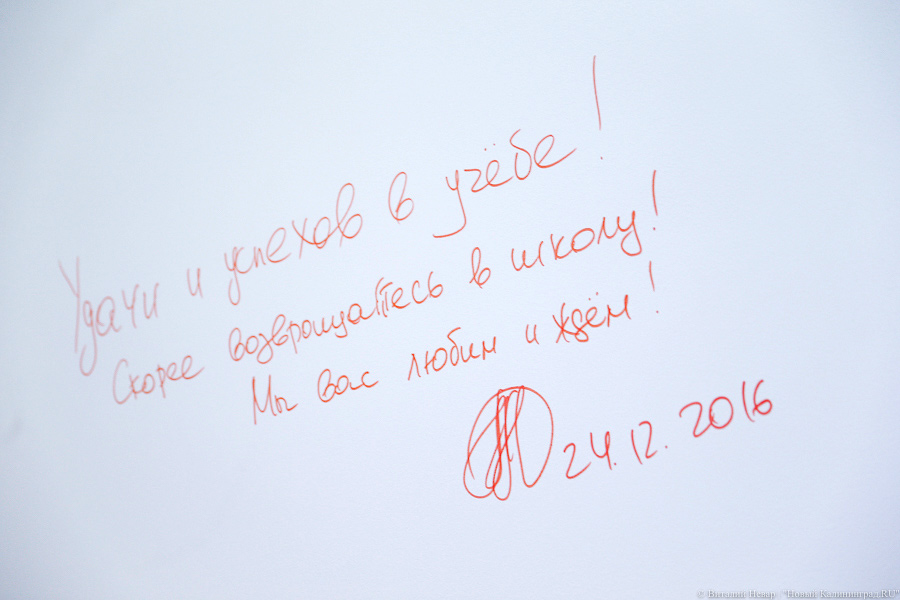 Удачи и успехов в учёбе!
Скорее возвращайтесь в школу!
Мы вас любим и ждём!
24.12.2016
© Виталий Невар / "Новый Калининград.RU"